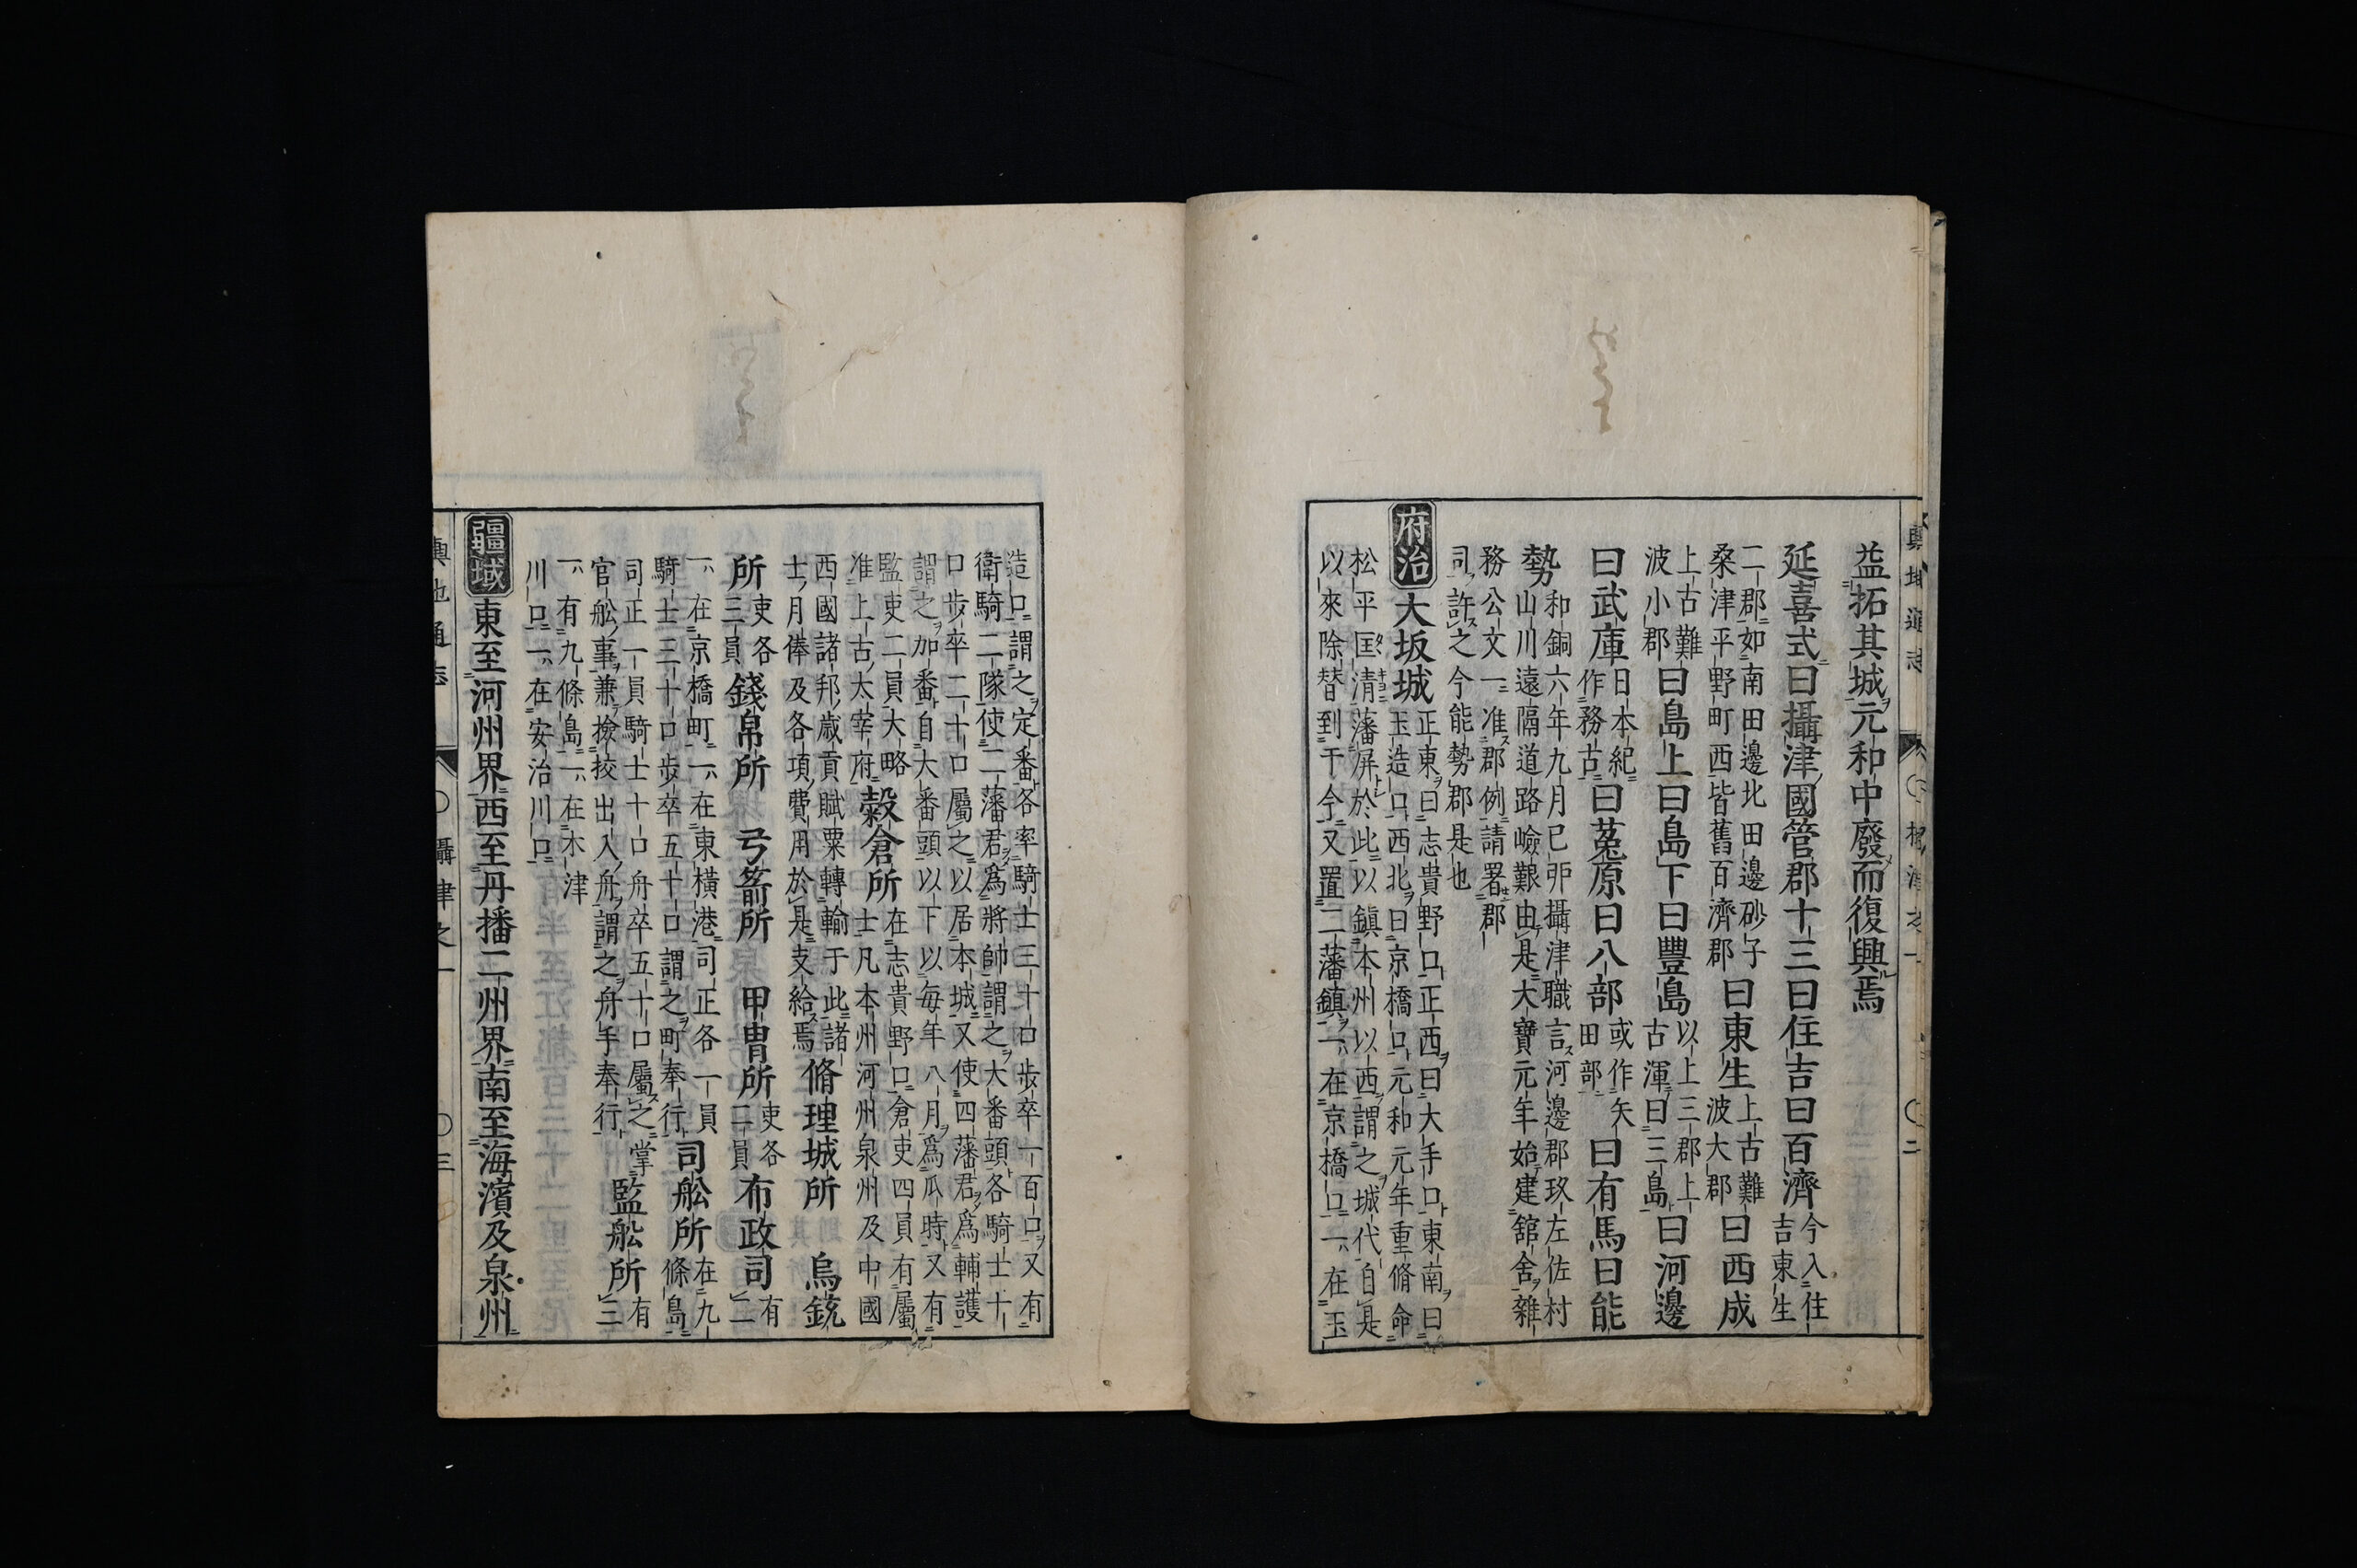 益拓其城元和中廢而復興焉
延喜式曰攝津國管郡十三曰住吉曰百濟今入住
吉東生
二郡如南田邊北田邊砂子
桑津平野町西皆舊百濟郡曰東生上古難
波大郡曰西成
上古難
波小郡曰島上曰島下曰豐島以上三郡上
古渾曰三島曰河邊
曰武庫日本紀
作務古曰菟原曰八部或作矢
田部曰有馬曰能
勢和銅六年九月已卯攝津職言河邊郡玖左佐村
山川遠隔道路嶮艱由是大寶元年始建舘舍雜
務公文一准郡例請署郡
司許之今能勢郡是也
府治大坂城正東曰志貴野口正西曰大手口東南曰
玉造口西北曰京橋口元和元年重脩命
松平匡清藩屏於此以鎮本州以西謂之城代自是
以來除替到于今又置二藩鎮一在京橋口一在玉
造口謂之定番各率騎士三十口歩卒一百口又有
衛騎二隊使二藩君爲將帥謂之大番頭各騎士十
口歩卒二十口屬之以居本城又使四藩君爲輔護
謂之加番自大番頭以下以毎年八月爲瓜時又有
監吏二員大略
准上古太宰府穀倉所在志貴野口倉吏四員有屬
士凡本州河州泉州及中國
西國諸邦歳貢賦粟轉輸于此諸
士月俸及各項費用於是支給焉脩理城所　烏銃
所吏各
三員錢帛所　弓箭所　甲冑所吏各
二員布政司有
二
一在京橋町一在東横港司正各一員
騎士三十口歩卒五十口謂之町奉行司舩所在九
條島
司正一員騎士十口舟卒五十口屬之掌
官舩事兼撿挍出入舟謂之舟手奉行監舩所有
三
一有九條島一在木津
川口一在安治川口
疆域東至河州界西至丹播二州界南至海濱及泉州
輿地通志　攝津之一　二
輿地通志　攝津之一　三